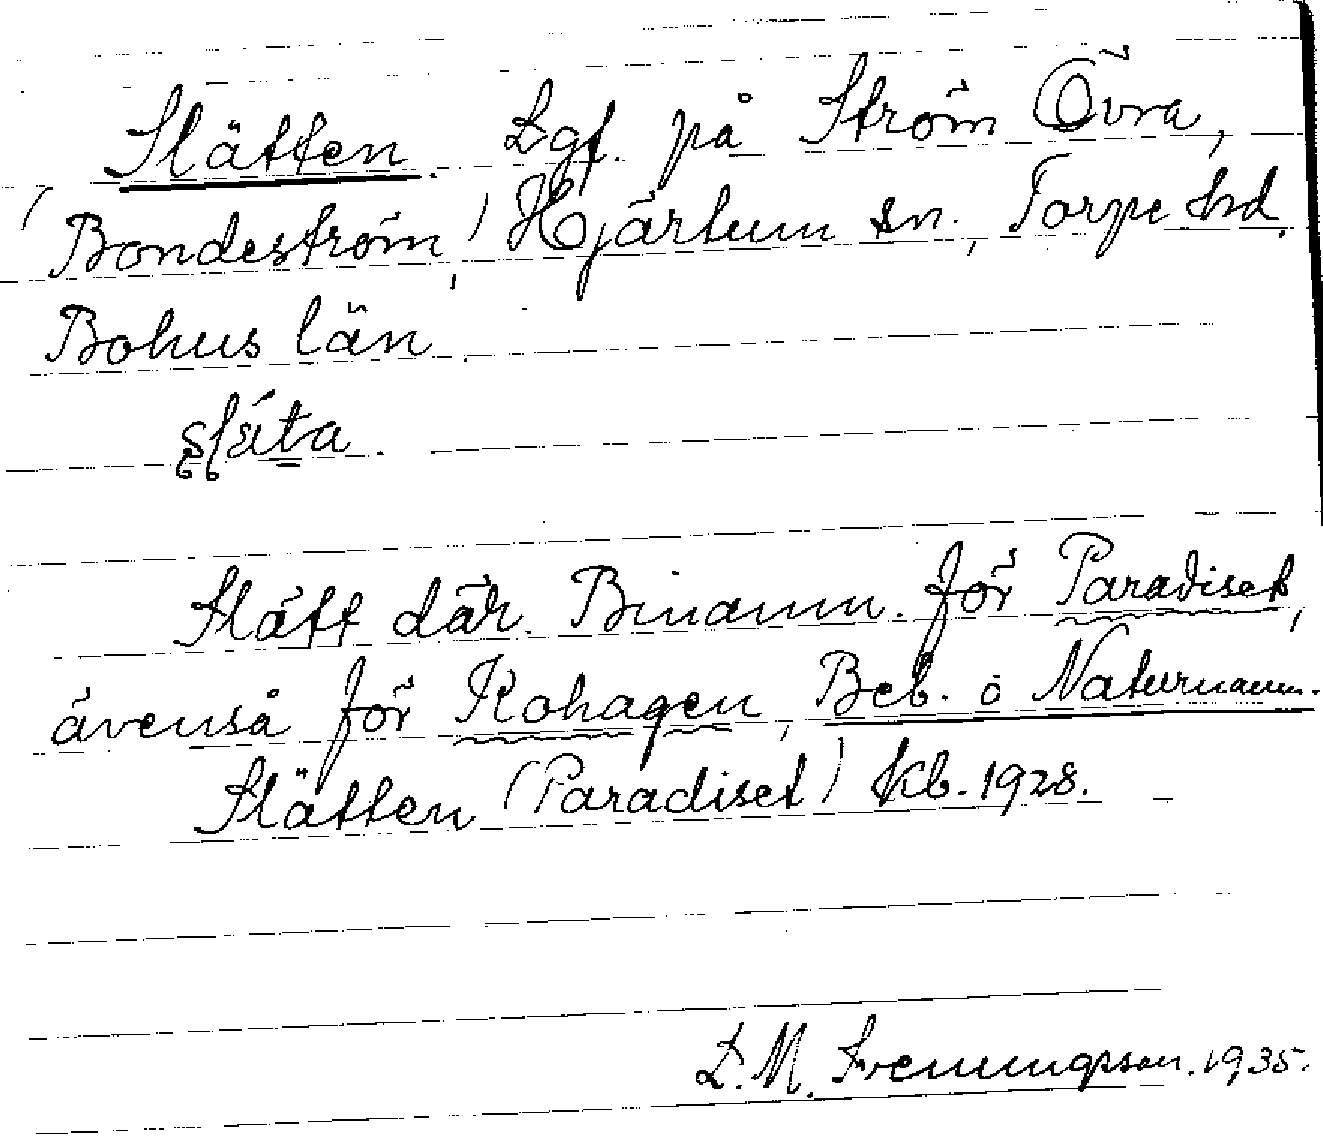 Slätten. Lgt. på Ström Övra,
(Bondeström,) Hjärtum sn., Torpe hd.
Bohus län
släta.
Slätt där. Binamn. för Paradiset,
även så för Kohagen, Beb. o Naturnamn.
Slätten (Paradiset) kb. 1928.
L. M. Svenungsson. 1935.